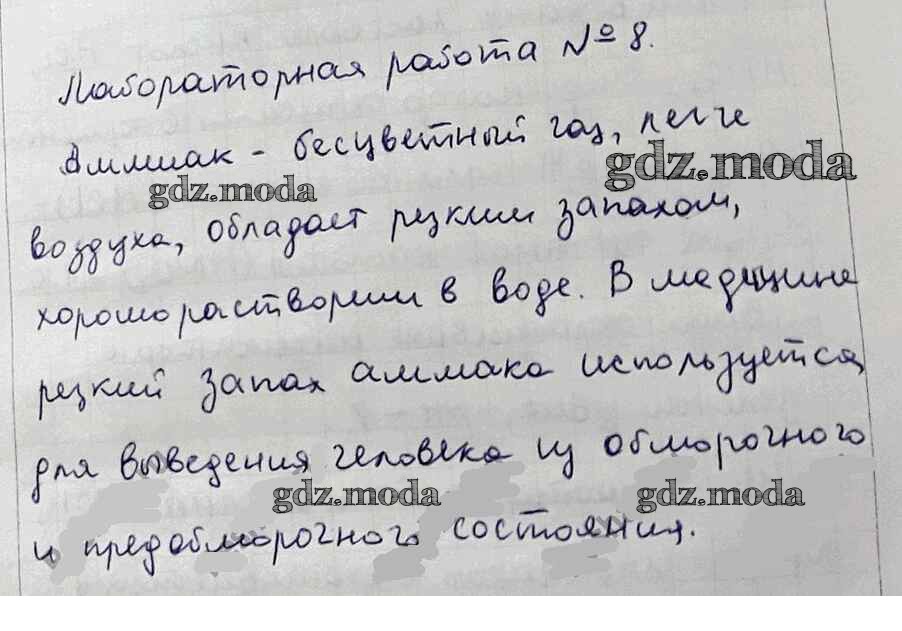 Лабораторная работа №8.
Аммиак - бесцветный газ, легче
gdz.moda
gdz.moda
воздуха, обладает резким запахом,
хорошо растворим в воде. В медицине
резкий запах аммиака используется
для выведения человека из обморочного
gdz.moda
gdz.moda
и предобморочного состояния.